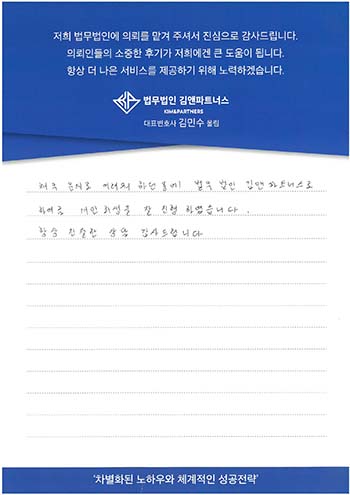 저희 법무법인에 의뢰를 맡겨 주셔서 진심으로 감사드립니다.
의뢰인들의 소중한 후기가 저희에겐 큰 도움이 됩니다.
항상 더 나은 서비스를 제공하기 위해 노력하겠습니다.
법무법인 김앤파트너스
KIM&PARTNERS
대표변호사 김민수 올림
채무 문제로 어려워 하던 중에 법무 법인 김앤 파트너스로
하여금 개인회생을 잘 진행 하였습니다.
항상 친절한 상담 감사드립니다
'차별화된 노하우와 체계적인 성공전략'